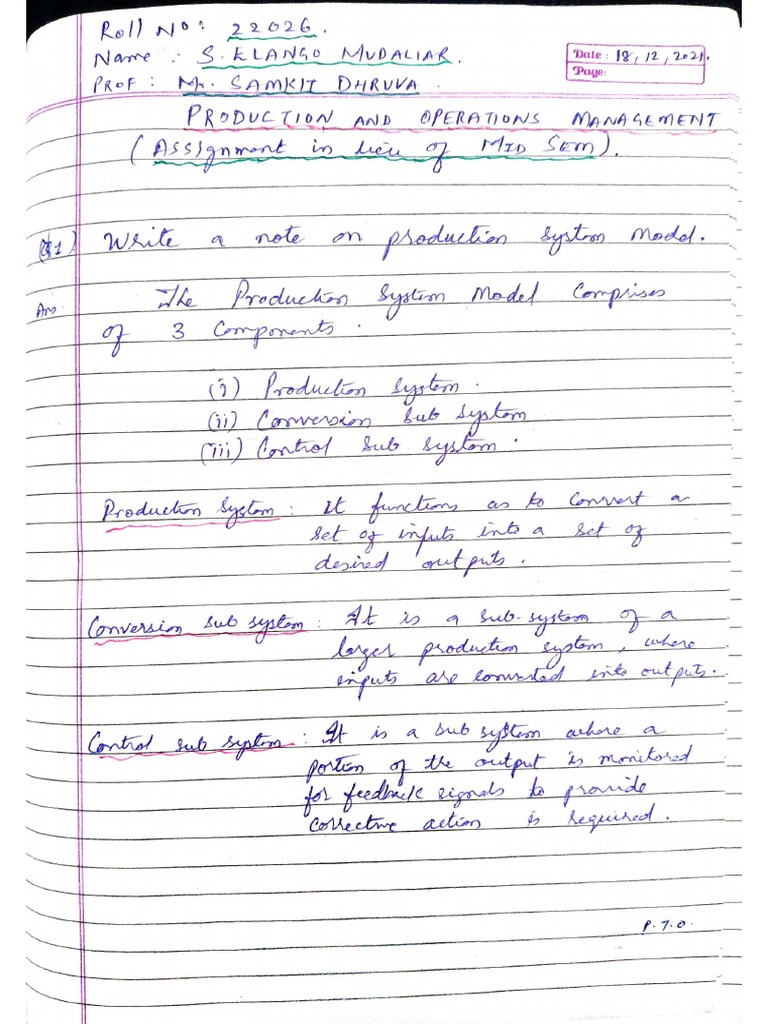 Roll No: 22026.
Name: S. ELANGO MUDALIAR.
Date: 18, 12, 2021.
PROF: Mr. SAMKIT DHRUVA.
Page:
PRODUCTION AND OPERATIONS MANAGEMENT
(Assignment in lieu of MID SEM).
Q1) Write a note on production system Model.
Ans. The Production System Model Comprises
of 3 Components.
(i) Production system.
(ii) Conversion Sub System
(iii) Control Sub System.
Production System: It functions as to convert a
set of inputs into a set of
desired outputs.
Conversion Sub system: It is a sub-system of a
larger production system, where
inputs are converted into outputs.
Control sub system: It is a sub system where a
portion of the output is monitored
for feedback signals to provide
corrective action is required.
P.T.O.